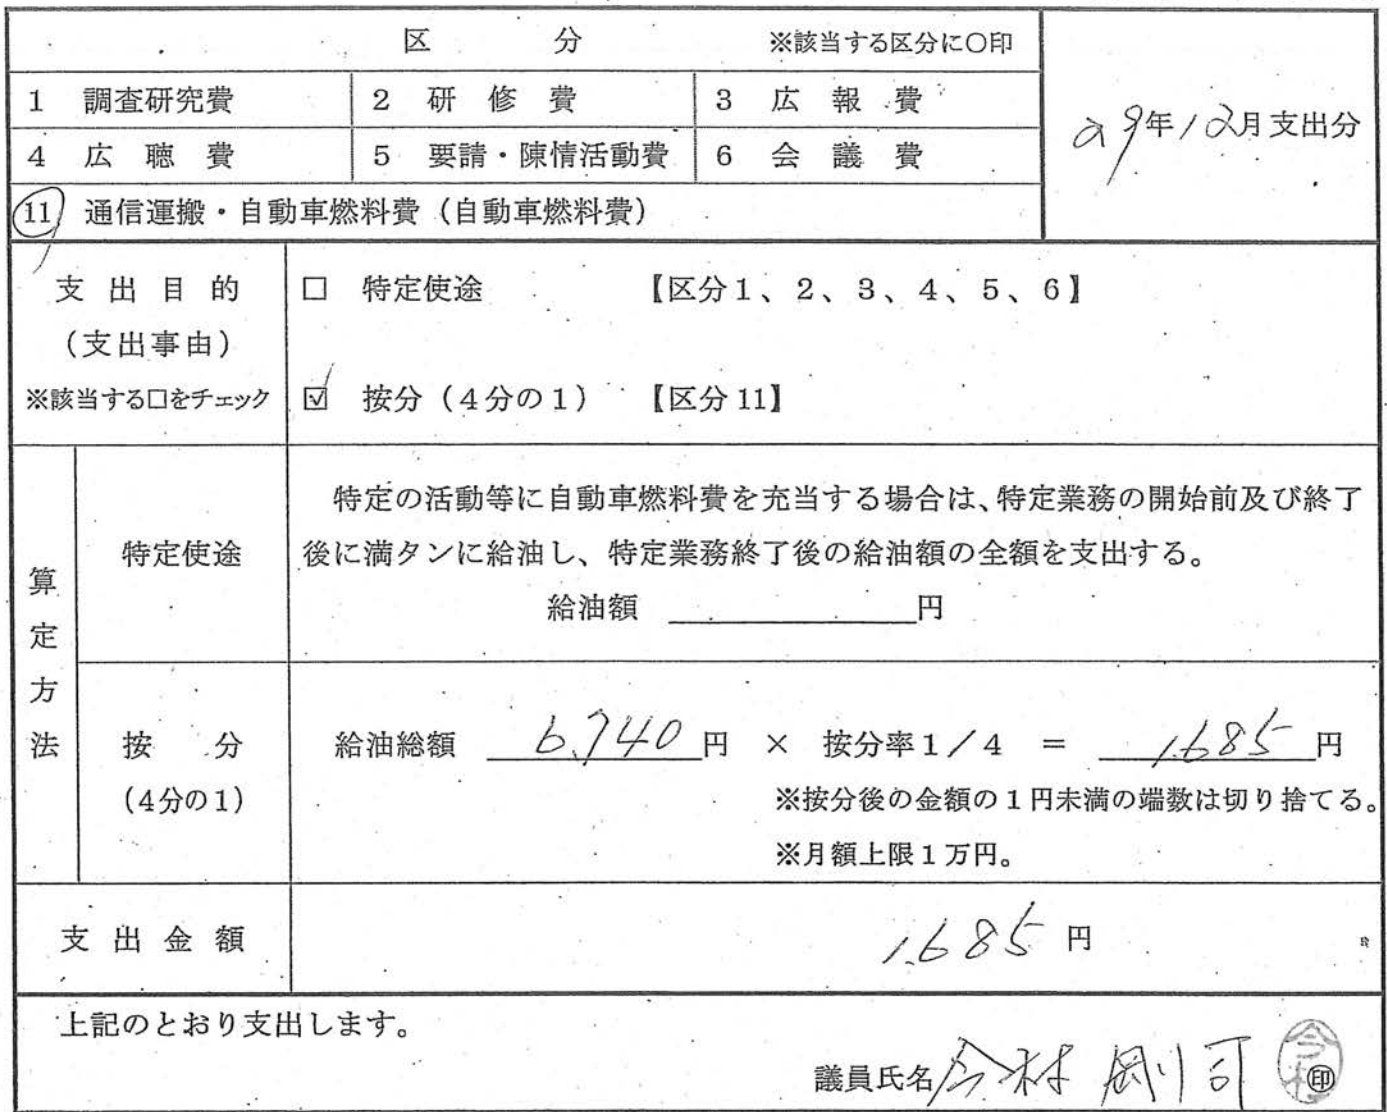 区　分　※該当する区分に〇印
29年12月支出分
1　調査研究費　2　研　修　費　3　広　報　費
4　広　聴　費　5　要請・陳情活動費　6　会　議　費
11　通信運搬・自動車燃料費（自動車燃料費）
支 出 目 的
（支出事由）
※該当する□をチェック
□　特定使途　【区分1、2、3、4、5、6】
☑　按分（4分の1）　【区分11】
算定方法
特定使途
特定の活動等に自動車燃料費を充当する場合は、特定業務の開始前及び終了
後に満タンに給油し、特定業務終了後の給油額の全額を支出する。
給油額　　　　　円
按　分
（4分の1）
給油総額　6,740円　×　按分率1／4　＝　1,685円
※按分後の金額の1円未満の端数は切り捨てる。
※月額上限1万円。
支 出 金 額　1,685 円
上記のとおり支出します。
議員氏名 今村 剛司 ㊞
今村